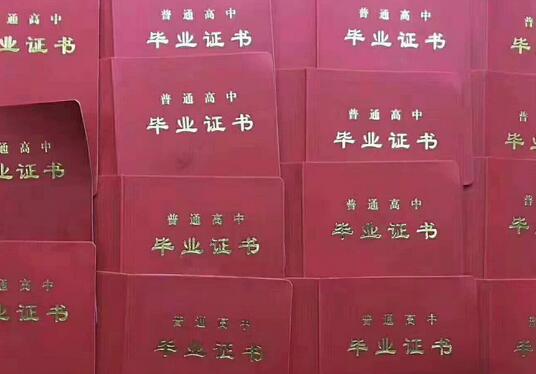 普通高中
毕业证书
普通高中
毕业证书
普通高中
毕业证书
普
毕业
普通高中
毕业证书
普通高中
毕业证书
普
毕业
通高中
业证书
普通高中
毕业证书
普通高中
毕业证书
普
毕业
普通高中
毕业证书
普通高中
毕业证书
普
毕业
业证书